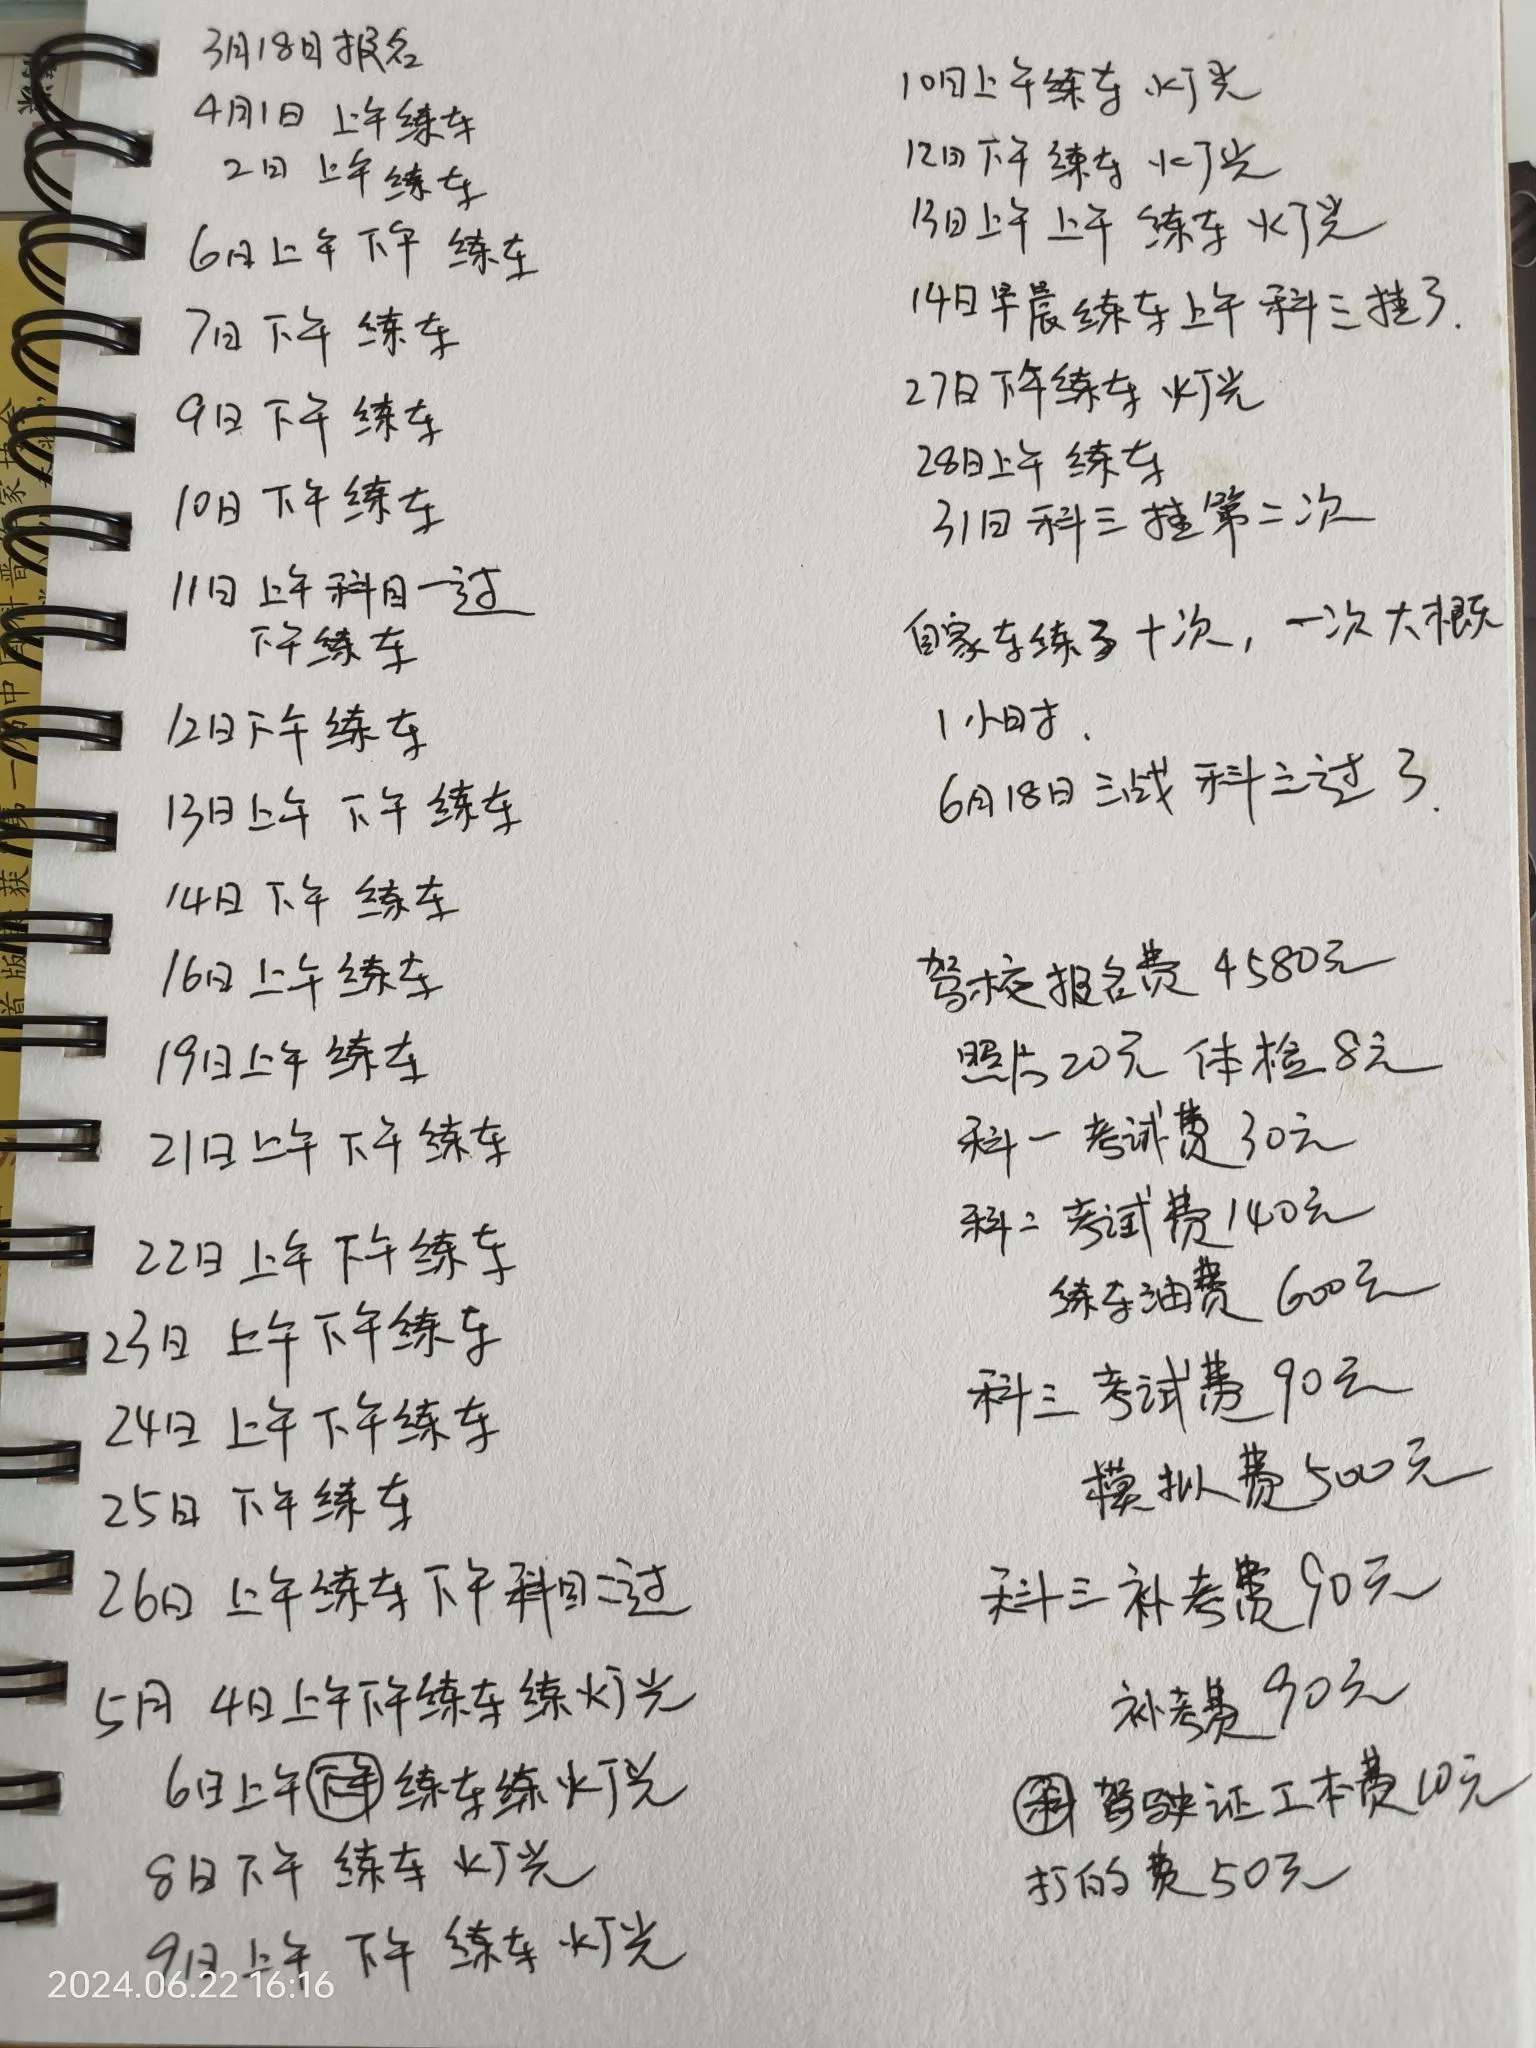 3月18日报名
4月1日 上午练车
2日 上午练车
6日上午 下午 练车
7日 下午 练车
9日 下午 练车
10日 下午 练车
11日 上午 科目一过
下午练车
12日下午 练车
13日上午 下午 练车
14日 下午 练车
16日 上午 练车
19日上午 练车
21日上午 下午 练车
22日 上午 下午 练车
23日 上午 下午练车
24日 上午 下午练车
25日 下午 练车
26日 上午练车 下午 科目二过
5月 4日上午下午练车 练灯光
6日上午 下午 练车练灯光
8日下午 练车 灯光
9日上午 下午 练车 灯光
10日上午练车 灯光
12日下午 练车 灯光
13日上午 上午 练车 灯光
14日早晨练车上午 科三挂了.
27日下午练车 灯光
28日上午 练车
31日 科三挂第二次
自家车练了十次, 一次大概
1小时.
6月18日三战 科三过了.
驾校报名费 4580元
照片20元 体检8元
科一考试费30元
科二考试费140元
练车油费 600元
科三考试费90元
模拟费500元
科三补考费90元
补考费90元
科 驾驶证工本费10元
打的费50元
2024.06.22 16:16